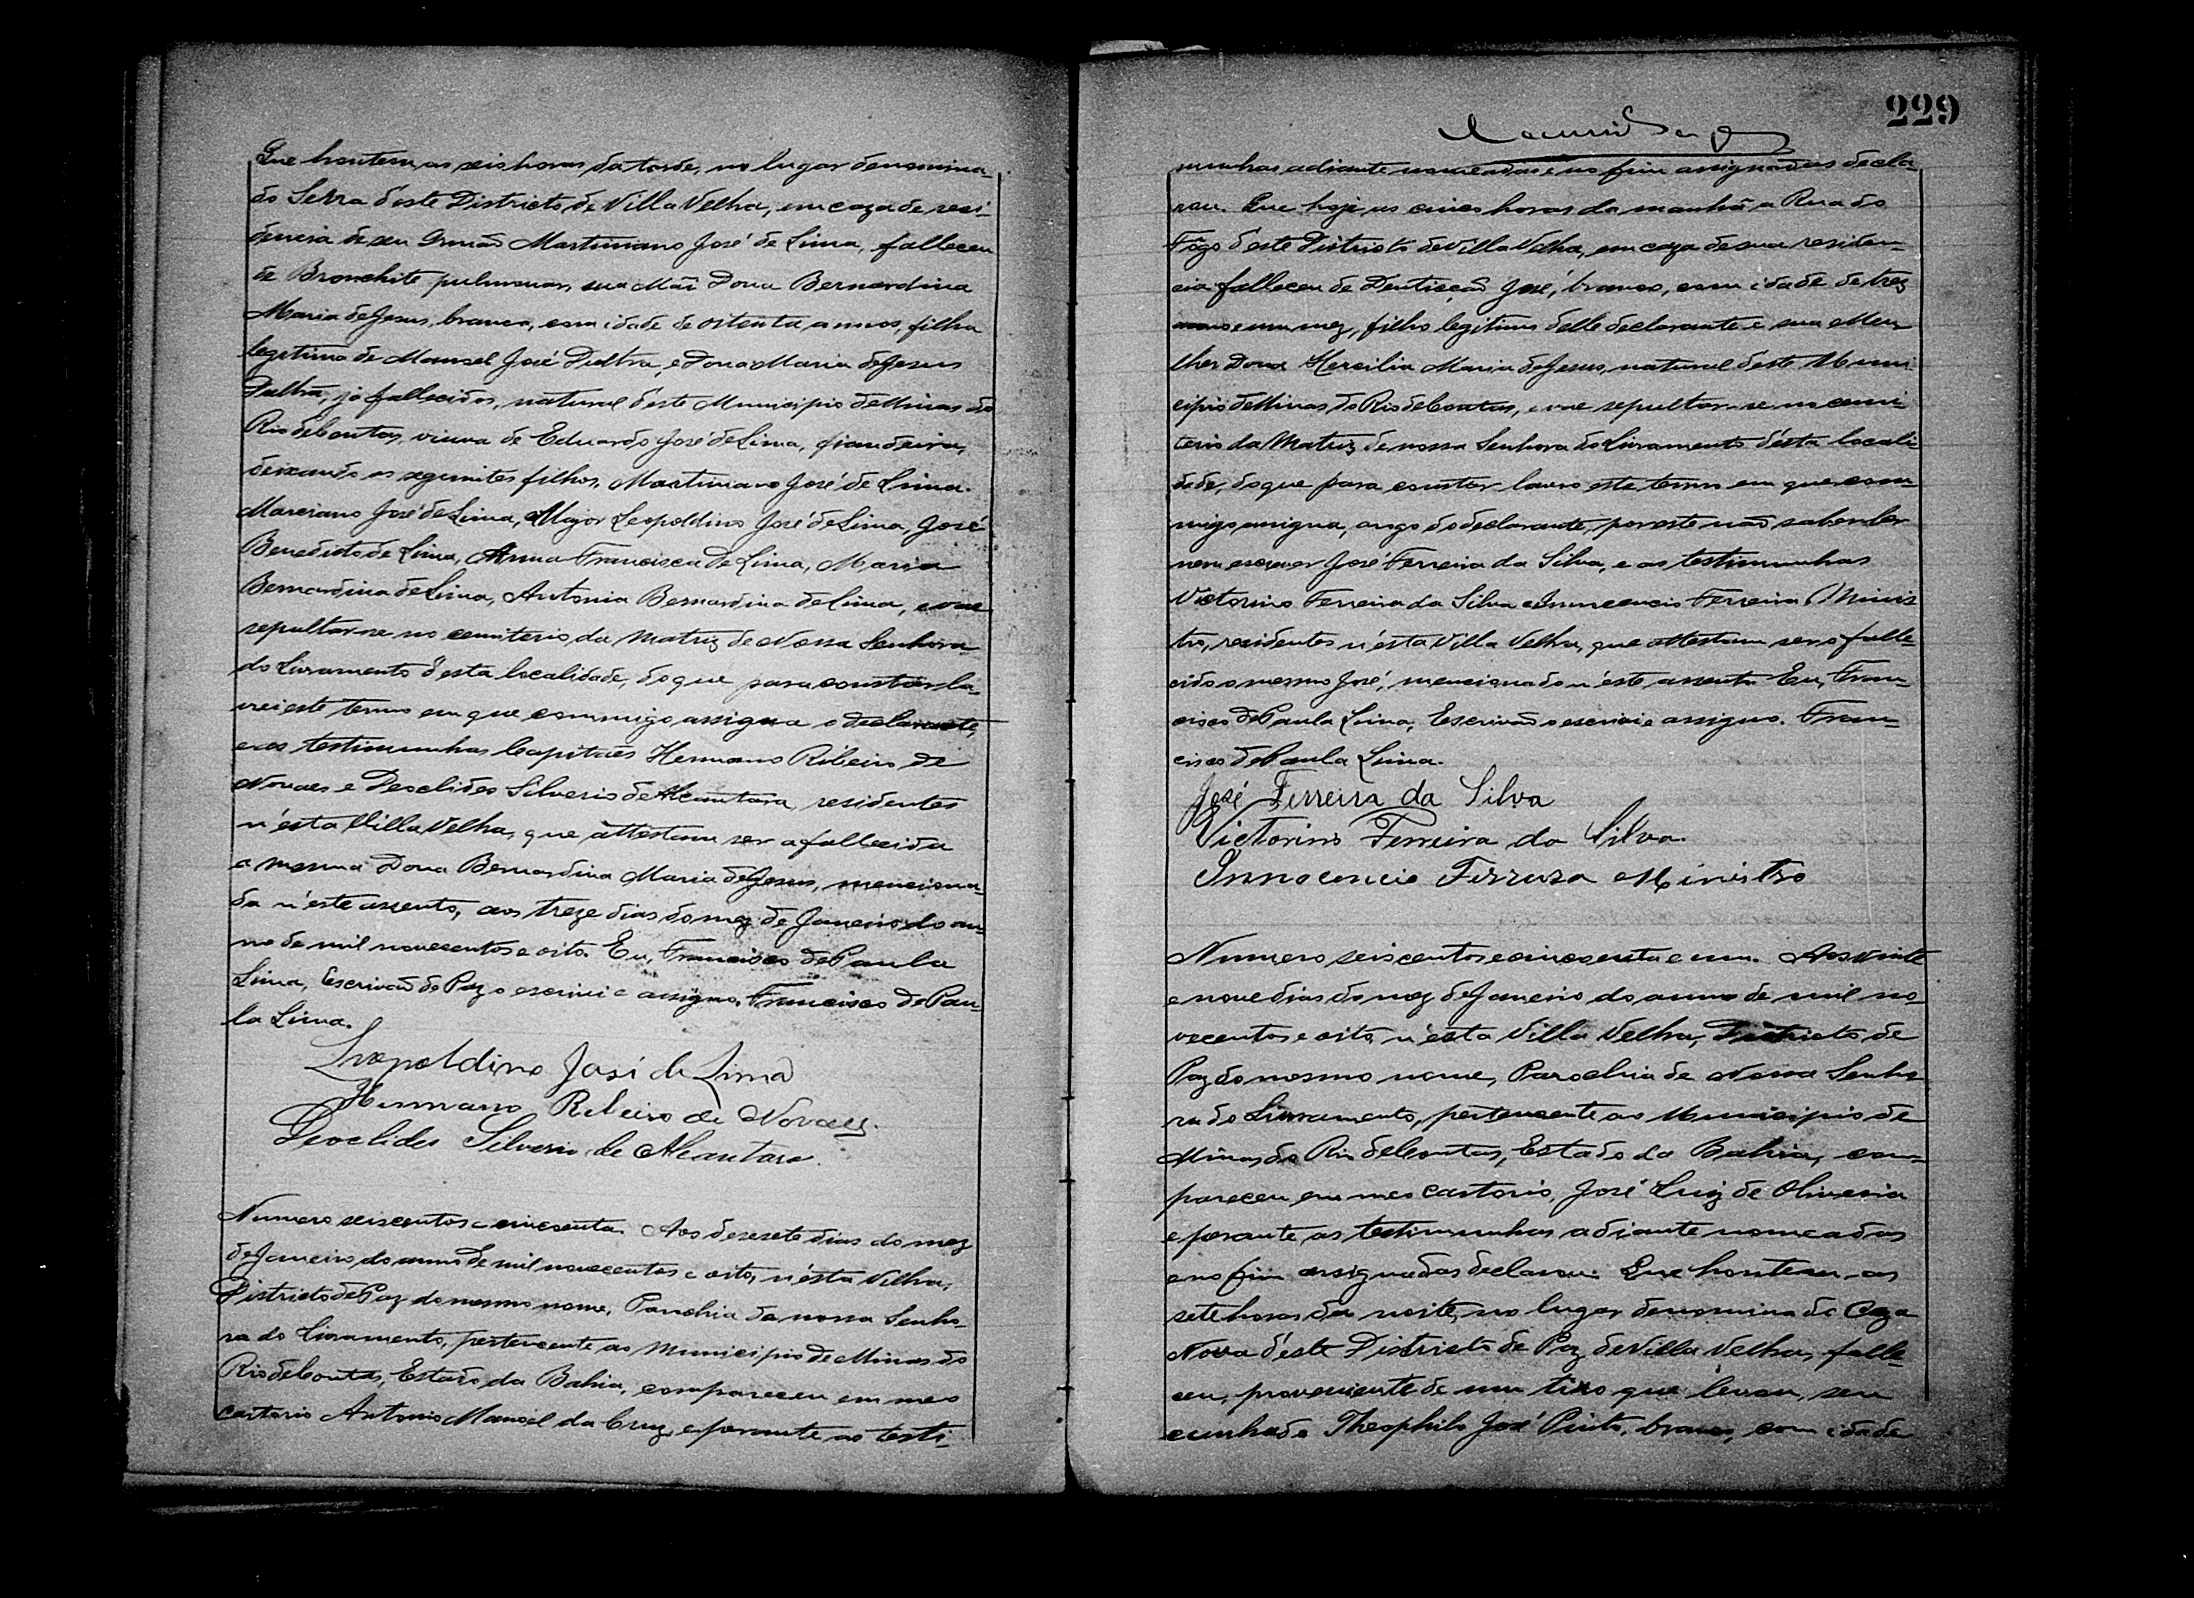 Que hontem, as seis horas da tarde, no lugar denomina-
do Serra d'este Districto de Villa Velha, em caza de resi-
dencia de seu Irmão Martiniano José de Lima, falleceu
de Bronchite pulmonar, sua Mãi Dona Bernardina
Maria de Jesus, branca, com idade de oitenta annos, filha
legitima de Manoel José Dultra, e Dona Maria de Jesus
Dultra, já fallecidos, natural d'este Municipio de Minas do
Rio de Contas, viuva de Eduardo José de Lima, fiandeira,
deixando os seguintes filhos, Martiniano José de Lima.
Marciano José de Lima, Major Leopoldino José de Lima, José
Benedicto de Lima, Anna Francisca de Lima, Maria
Bernardina de Lima, Antonia Bernardina de Lima, e vae
sepultar-se no cemiterio da Matriz de Nossa Senhora
do Livramento d'esta localidade, do que para constar la-
vrei este termo em que commigo assigna o declarante,
e as testimunhas Capitães Hermano Ribeiro de
Novaes e Deoclides Silverio de Alcantara, residentes
n'esta Villa Velha, que attestam ser a fallecida
a mesma Dona Bernardina Maria de Jesus, menciona-
da n'este assento, aos treze dias do mez de Janeiro do an-
no de mil novecentos e oito. Eu, Francisco de Paula
Lima, Escrivão de Paz o escrivi e assigno. Francisco de Pau-
la Lima.
Leopoldino José de Lima
Hermano Ribeiro de Novaes.
Deoclides Silverio de Alcantara.
Numero seiscentos e cincoenta. Aos desesete dias do mez
de Janeiro do anno de mil novecentos e oito, n'esta Velha,
Districto de Paz do mesmo nome, Parochia de nossa Senho-
ra do Livramento, pertencente ao Municipio de Minas do
Rio de Contas, Estado da Bahia, compareceu em meo
cartorio Antonio Manoel da Cruz, e perante as testi-
229
munhas adiante nomeadas e no fim assignadas decla-
rou. Que hoje as cinco horas da manhã a Rua do
Fogo d'este Districto de Villa Velha, em caza de sua residen-
cia falleceu de Dentição José, branco, com idade de trez
e um mez, filho legitimo delle declarante e sua Mu
lher Dona Hersilia Maria de Jesus, natural d'este Muni
cipio de Minas do Rio de Contas, e vae sepultar-se no cemi-
terio da Matriz de nossa Senhora do Livramento d'esta locali-
dade, do que para constar lavro este termo em que com-
migo assigna, a rogo do declarante, por este não saber ler
nem escrever José Ferreira da Silva, e as testimunhas
Victorino Ferreira da Silva e Innocencio Ferreira Minis
tro, residentes n'esta Villa Velha, que attestam ser o falle-
cido o mesmo José, mencionado n'este assento. Eu, Fran-
cisco de Paula Lima, Escrivão o escrivi e assigno. Fran-
cisco de Paula Lima.
José Ferreira da Silva
Victorino Ferreira da Silva.
Innocencio Ferreira Ministro
Numero seiscentos e cincoenta e um. Aos vinte
e nove dias do mez de Janeiro do anno de mil no-
vecentos e oito, n'esta Villa Velha, Districto de
Paz do mesmo nome, Parochia de Nossa Senho
ra do Livramento, pertencente ao Municipio de
Minas do Rio de Contas, Estado da Bahia, com-
pareceu em meo cartorio, José Luiz de Oliveira
e perante as testimunhas adiante nomeadas
e no fim assignadas declarou. Que hontem, as
sete horas da noite, no lugar denominado Caza
Nova d'este Districto de Paz de Villa Velha, falle-
ceu, proveniente de um tiro que levou, seu
cunhado Theophilo José Pinto, branco, com idade